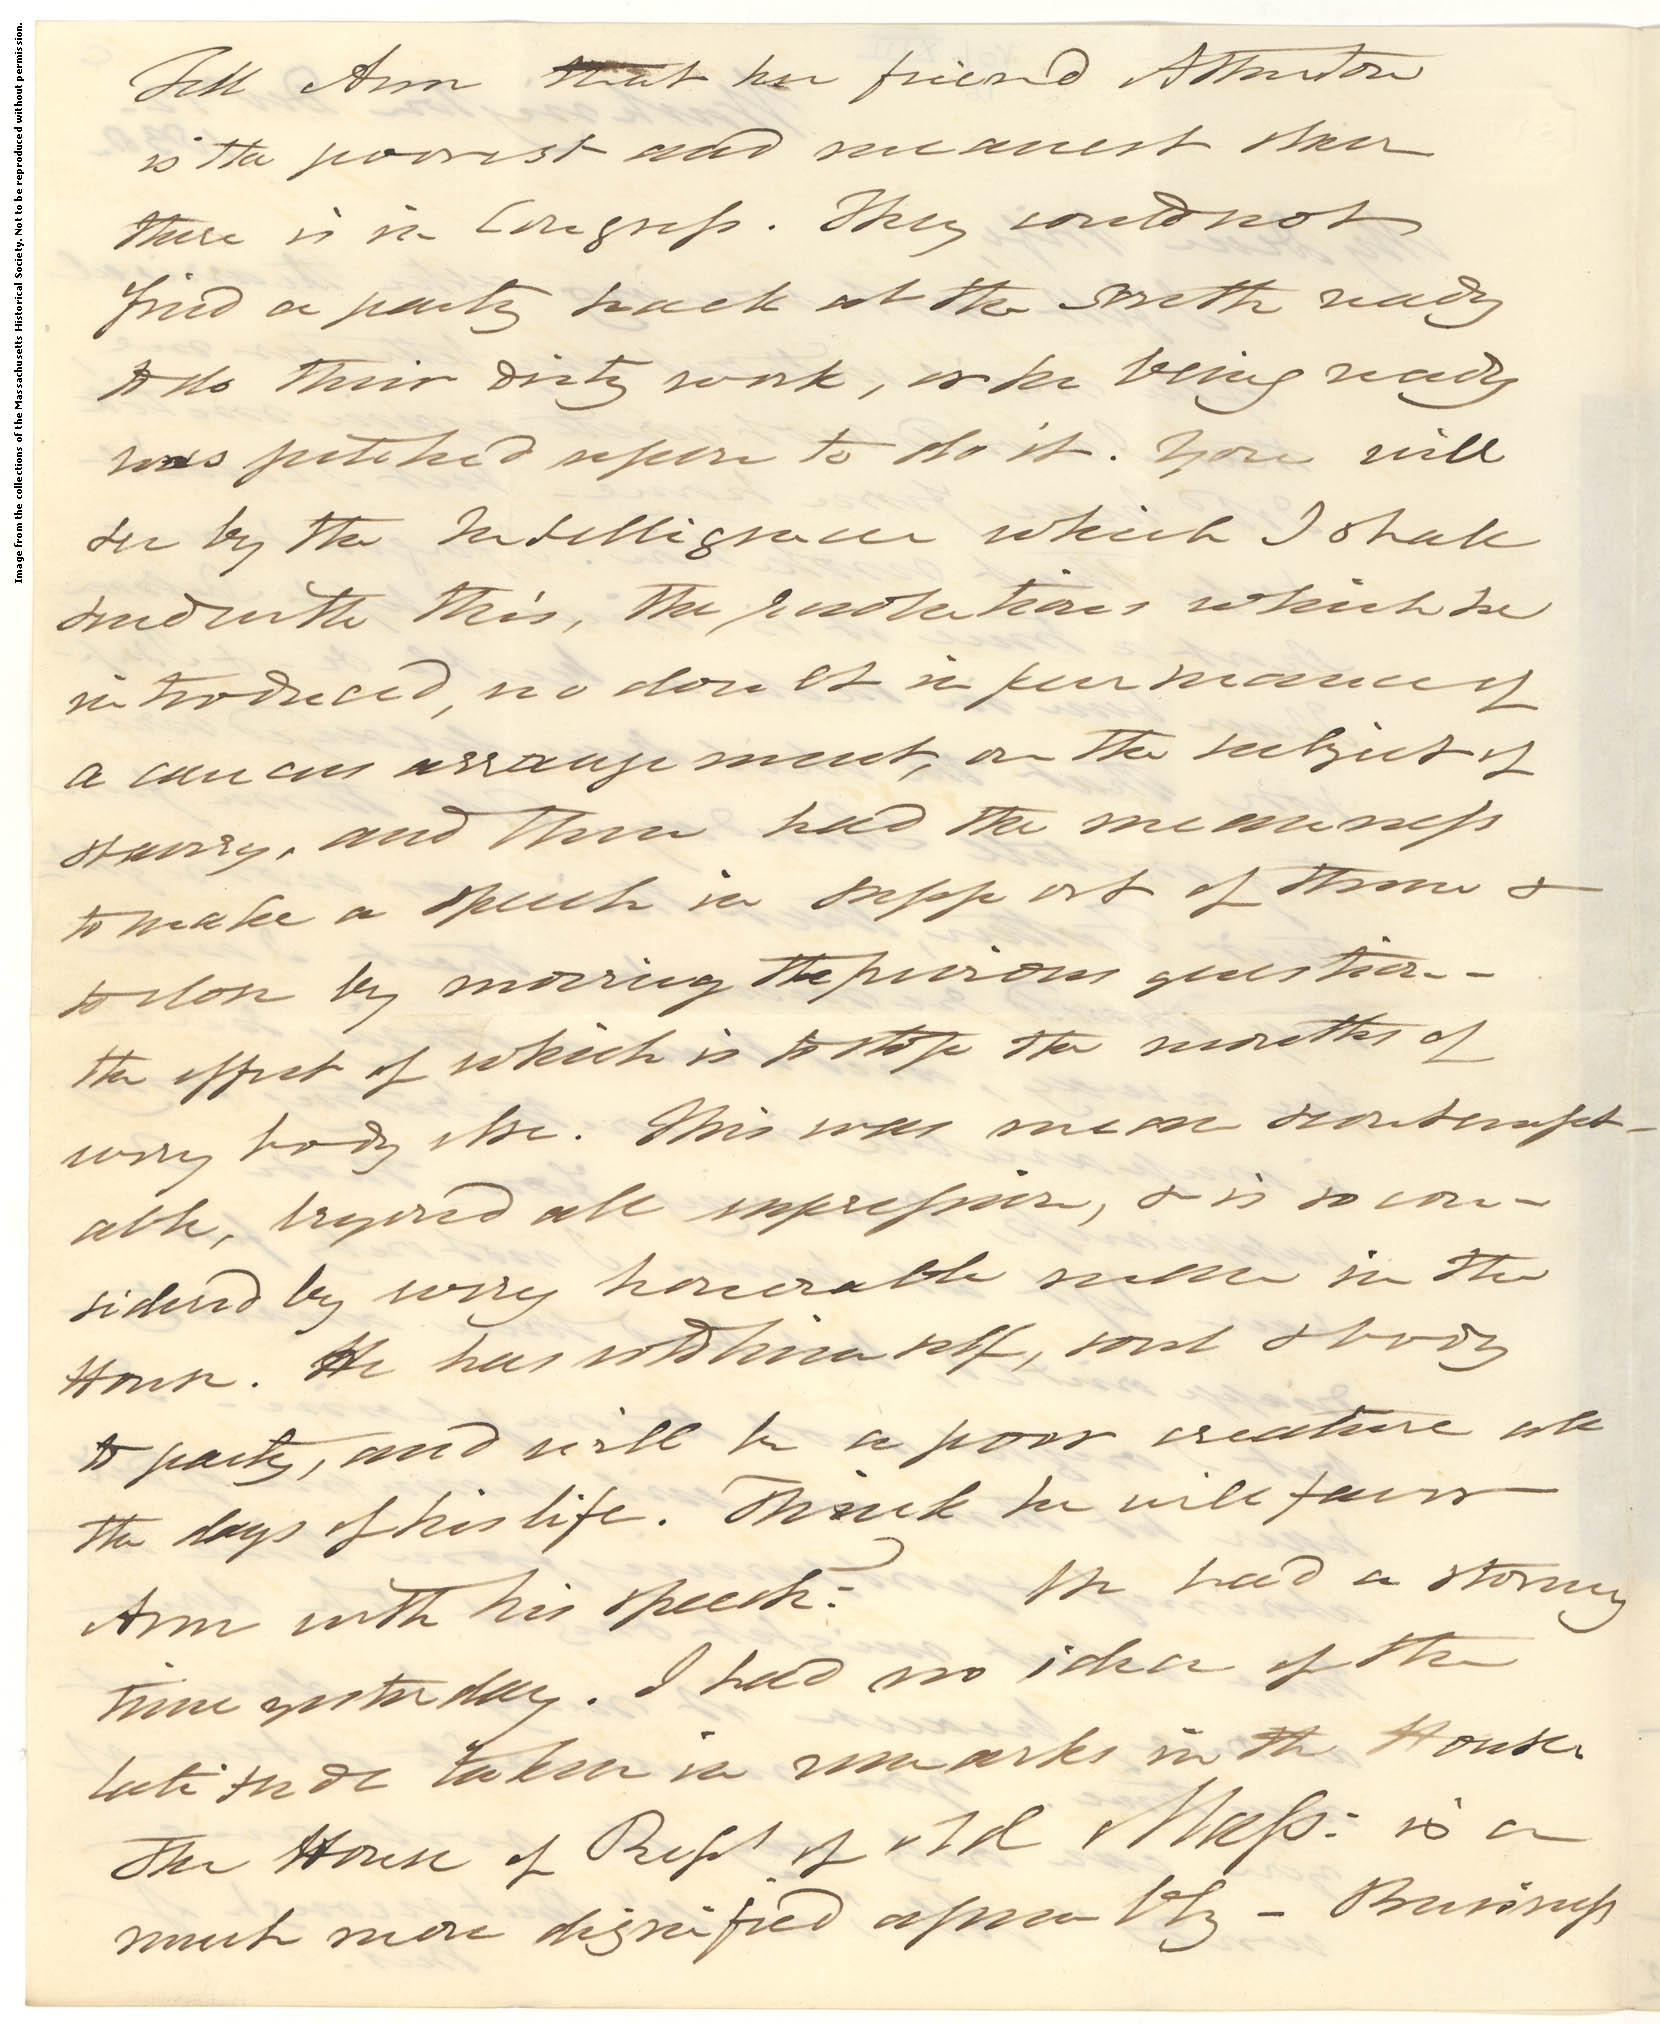 Image from the collections of the Massachusetts Historical Society. Not to be reproduced without permission.
Tell Ann that her friend Atherton
is the poorest and meanest skin
there is in Congress. They could not
find a party hack at the South ready
to do their dirty work, or he being ready
was pitched upon to do it. You will
see by the Intelligencer which I shall
send with this, the resolutions which he
introduced, no doubt in pursuance of
a caucus arrangement, on the subject of
slavery, and then had the meanness
to make a speech in support of them &
to close by moving the previous question -
the effect of which is to stop the mouths of
every body else. This was mean & contempt-
able, beyond all expression, & is so con-
sidered by every honorable man in the
House. He has sold himself, soul & body
to party, and will be a poor creature all
the days of his life. Think he will favor
Ann with his speech? We had a stormy
time yesterday. I had no idea of the
latitude taken in remarks in the House.
The House of Reps. of old Mass: is a
much more dignified assembly - Business